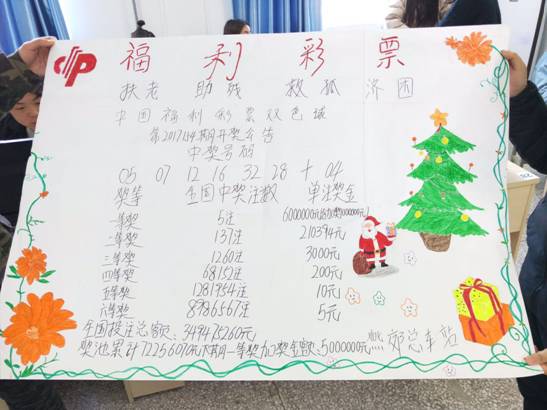 福利彩票
扶老 助残 救孤 济困
中国福利彩票双色球
第2017149期开奖公告
中奖号码
05 07 12 16 32 28 + 04
奖等 全国中奖注数 单注奖金
一等奖 5注
二等奖 137注 210394元
三等奖 1260注 3000元
四等奖 68152注 200元
五等奖 1281954注 10元
六等奖 8986567注 5元
全国投注总额: 349475260元
奖池累计722560 元下期一等奖 奖金额:5000000元 郊总车站